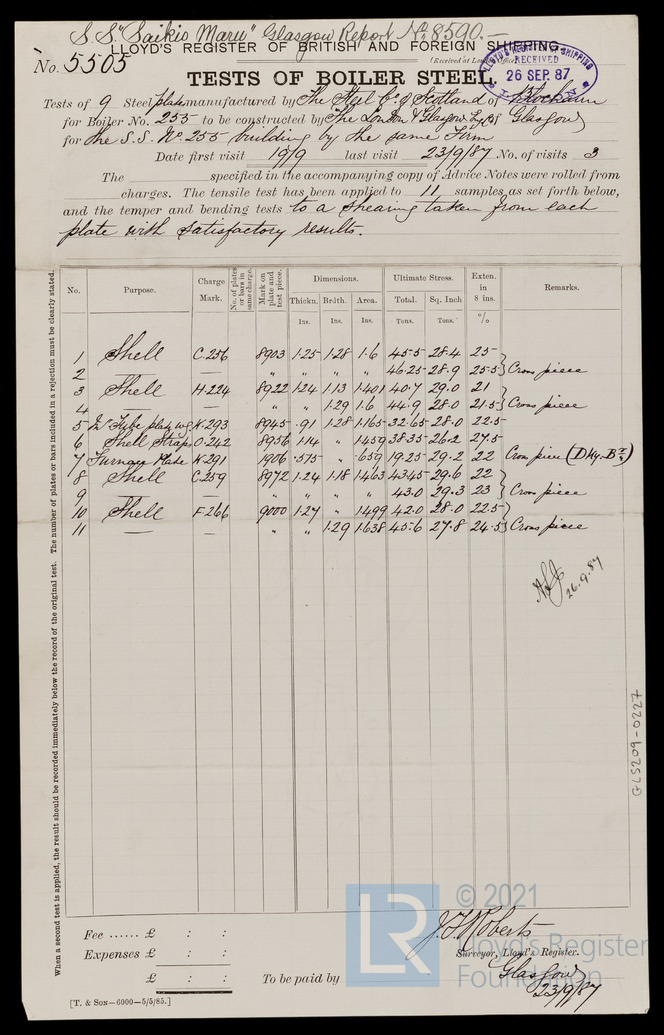 S.S. "Saikio Maru" Glasgow Report No. 8590.—
LLOYD'S REGISTER OF BRITISH AND FOREIGN SHIPPING.
No. 5505
(Received at London Office
LLOYD'S REGISTER OF SHIPPING
RECEIVED
26 SEP. 87
TESTS OF BOILER STEEL.
Tests of 9 Steel plates manufactured by The Steel Co. of Scotland of Blochairn
for Boiler No. 255 to be constructed by The London & Glasgow Eg. Co. of Glasgow
for the S.S. No. 255 building by the same Firm
Date first visit 19/9 last visit 23/9/87 No. of visits 3
The specified in the accompanying copy of Advice Notes were rolled from
charges. The tensile test has been applied to 11 samples as set forth below,
and the temper and bending tests to a shearing taken from each
plate with satisfactory results.
No. Purpose. Charge Mark. No. of plates or bars in same charge. Mark on plate and test piece. Dimensions. Ultimate Stress. Exten. in 8 ins. Remarks.
Thickn. Brdth. Area. Total. Sq. Inch
Ins. Ins. Ins. Tons. Tons. %
1 Shell C.256 8903 1.25 1.28 1.6 45.5 28.4 25
2 — — " " " " 46.25 28.9 25.5 } Cross piece
3 Shell H.224 8922 1.24 1.13 1.401 40.7 29.0 21
4 — — " " 1.29 1.6 44.9 28.0 21.5 } Cross piece
5 Tube plate K.293 8945 .91 1.28 1.165 32.65 28.0 22.5
6 Shell Straps O.242 8956 1.14 " 1.459 38.35 26.2 27.5
7 Furnace Plate K.291 1906 .575 " .659 19.25 29.2 22 Cross piece
8 Shell C.259 8972 1.24 1.18 1.463 43.45 29.6 22
9 — — " " " " 43.0 29.3 23 } Cross piece
10 Shell F.266 9000 1.27 " 1.499 42.0 28.0 22.5
11 — — " " 1.29 1.638 45.6 27.8 24.5 } Cross piece
26.9.87
The number of plates or bars included in a rejection must be clearly stated.
When a second test is applied, the result should be recorded immediately below the record of the original test.
GLS209-0227
Fee ...... £ : :
Expenses £ : :
£ : :
To be paid by
J. T. Roberts
Surveyor, Lloyd's Register.
Glasgow
23/9/87
[T. & Son—6000—5/5/85.]
LR
© 2021
Lloyd's Register
Foundation